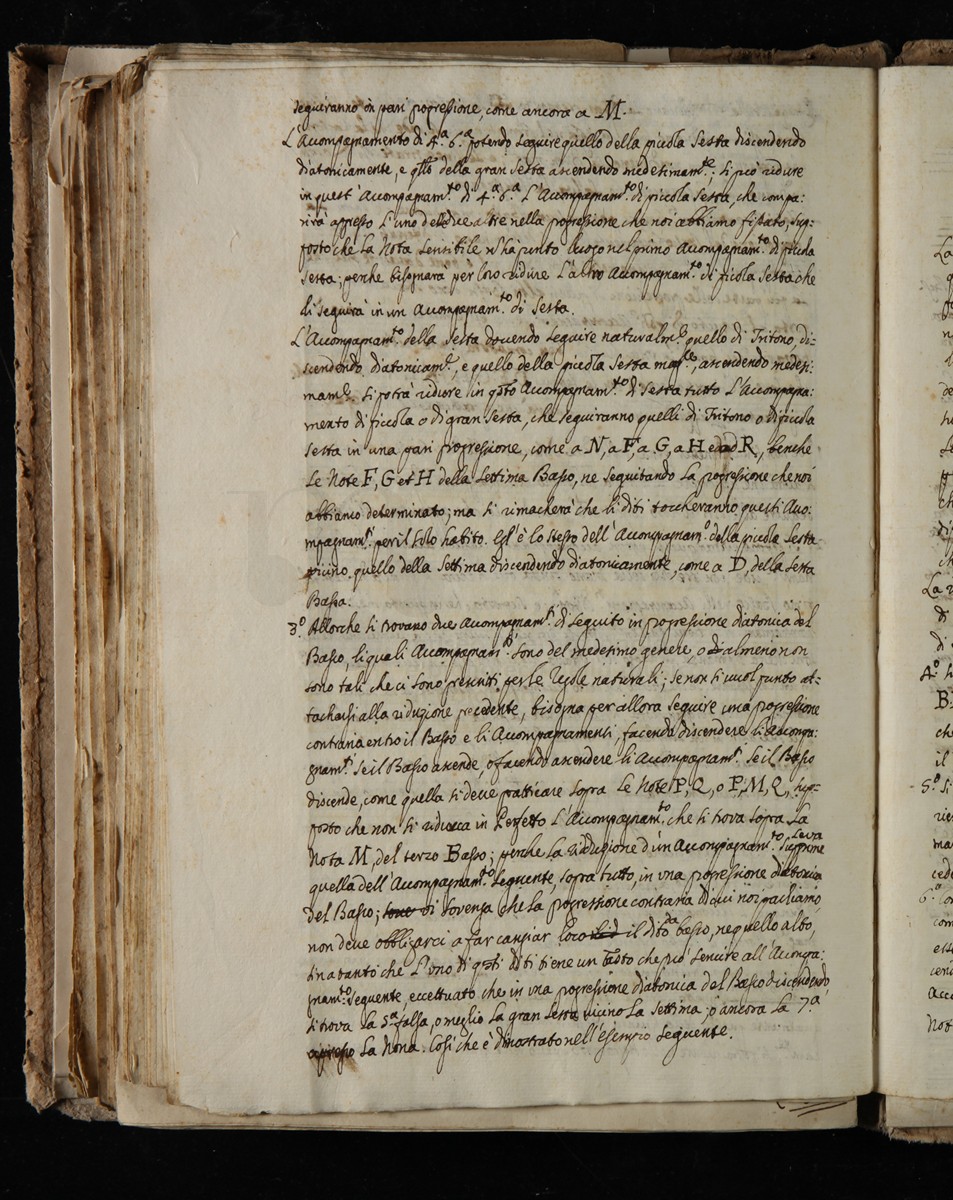 seguiranno in pari progressione, come ancora a M.
L'Accompagnamento di 4.ª 6.ª potendo seguire quello della piccola Sesta discendendo
diatonicamente, e q̃llo della gran Sesta ascendendo medesimam.te; si può ridure
in quest'Accompagnam.to di 4.ª 6.ª L'Accompagnam.to di piccola Sesta, che compa:
rirà appresso L'uno delle due altre nella progressione che noi abbiamo fissato, sup:
posto che La Nota Sensibile n'hà punto luogo nel primo Accompagnam.to di piccola
Sesta; perche bisognarà per loro ridure L'altro Accompagnam.to di picola Sesta che
li seguirà in un Accompagnam.to di Sesta.
L'Accompagnam.to della Sesta dovendo seguire naturalm.e quello di Tritono, di:
scendendo diatonicam.e, e quello della piccola Sesta mag.re, ascendendo medesi:
mam.e si potrà ridure in q̃sto Accompagnam.to di Sesta tutto L'Accompagna:
mento di piccola o di gran Sesta, che seguiranno quelli di Tritono o di piccola
Sesta in una pari progressione, come a N, a F, a G, a H ed ad R, benche
Le Note F, G et H della Settima Basso, ne seguitando La progressione che noi
abbiamo determinato; ma si rimacherà che li diti toccheranno questi Acco:
mpagnam.ti per il solo habito. Egl'è lo stesso dell'Accompagnam.o della piccola Sesta
vicino quello della Settima discendendo diatonicamente, come a D, della sesta
Bassa.
3.º Allorche si trovano due Accompagnam.ti di seguito in progressione diatonica del
Basso, li quali Accompagnam.ti sono del medesimo genere, o di almeno non
sono tali che ci sono prescritti per le Regole naturali; se non si vuol punto at:
tacharsi alla riduzione precedente, bisogna per allora seguire una progressione
contraria entro il Basso e li Accompagnamenti, facendo discendere li Accompa:
gnam.ti se il Basso ascende, o facendo ascendere li Accompagnam.ti se il Basso
discende, come quella si deve pratticare sopra Le Note P, Q, o P, M, Q, sup:
posto che non si riduca in Perfetto L'Accompagnam.to che si trova sopra La
Nota M, del terzo Basso; perche La riduzione d'un Accompagnam.to Leva
quella dell'Accompagnam.to seguente, sopra tutto, in una progressione diatonica
del Basso; di sovenza che La progressione contraria di cui noi parliamo
non deve obbligarci a far cangiar loco il dito da basso, ne quello alto,
in a tanto che L'uno di q̃sti diti tiene un tasto che può servire all'Accompa:
gnam.to seguente, eccettuato che in una progressione diatonica del Basso discendendo,
si trova la 5.ª falsa, o meglio La gran Sesta vicino La Settima; o ancora La 7.ª
appresso La Nona. Così che è dimostrato nell'esempio seguente.